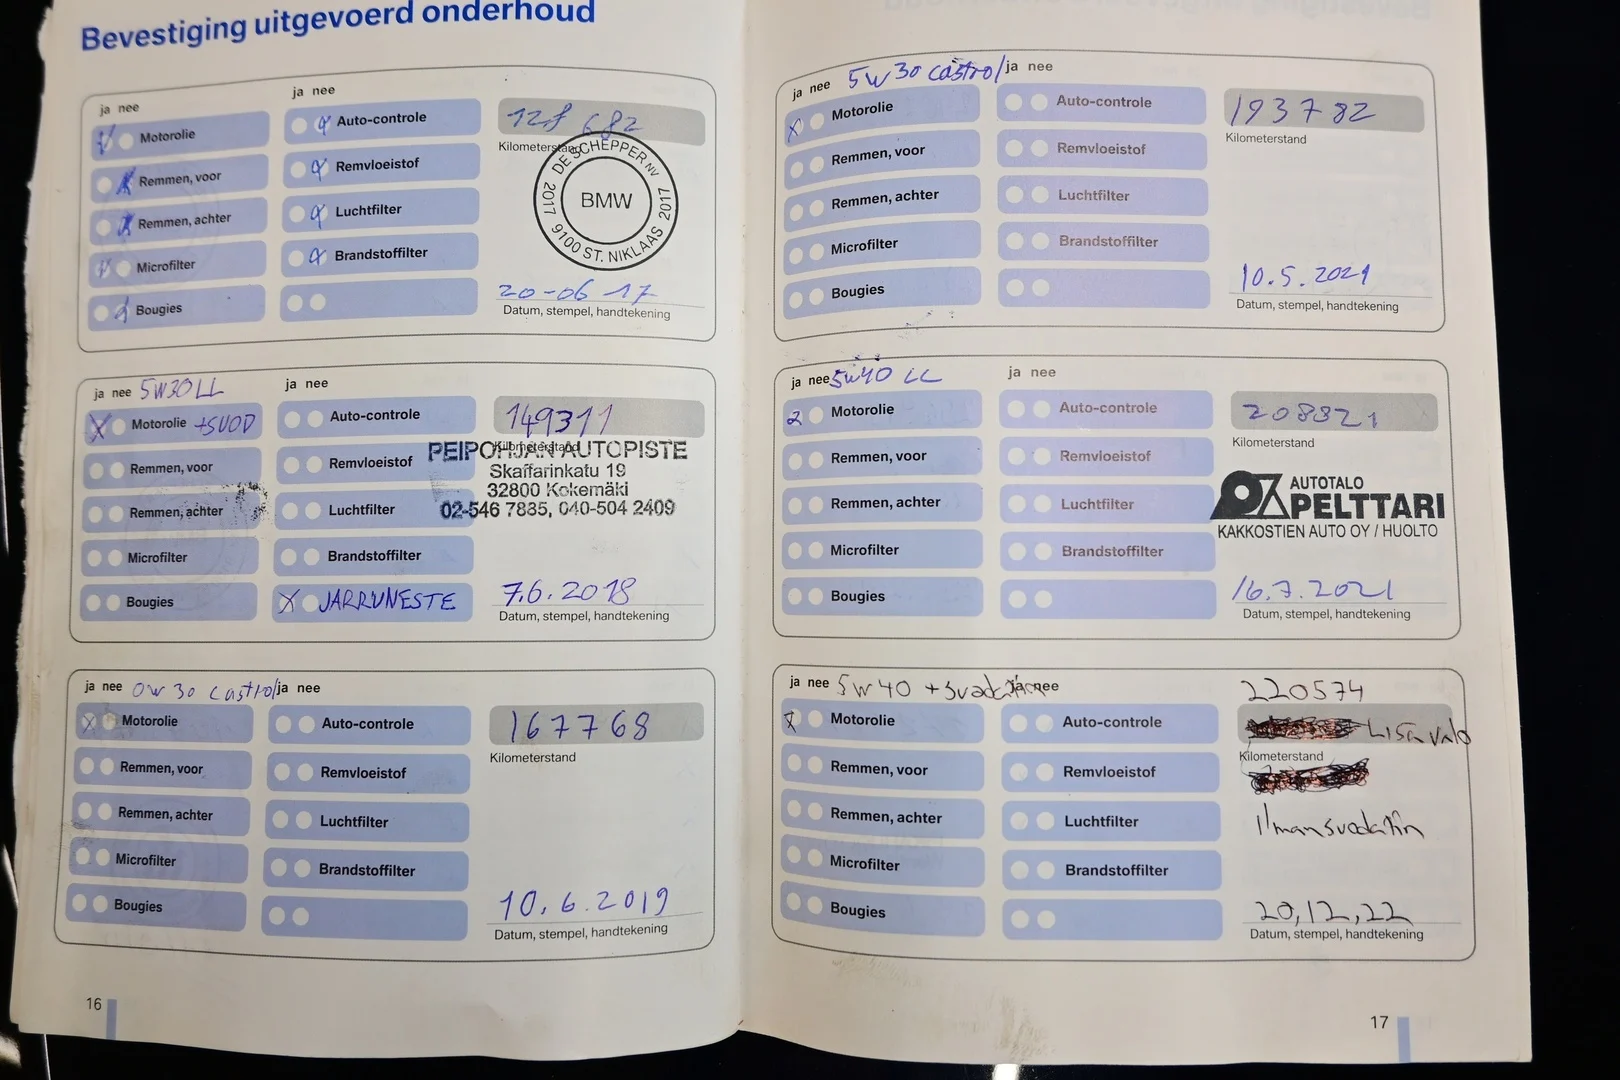 Bevestiging uitgevoerd onderhoud
ja nee
ja nee
Motorolie
Auto-controle
Remmen, voor
Remvloeistof
Remmen, achter
Luchtfilter
Microfilter
Brandstoffilter
Bougies
Kilometerstand
DE SCHEPPER NV
2017 BMW 2017
9100 ST. NIKLAAS
20-06 17
Datum, stempel, handtekening
ja nee 5W30LL
ja nee
Motorolie +SUOD
Auto-controle
Remmen, voor
Remvloeistof
Remmen, achter
Luchtfilter
Microfilter
Brandstoffilter
Bougies
X JARRUNESTE
149311
Kilometerstand
PEIPOHJAN AUTOPISTE
Skaffarinkatu 19
32800 Kokemäki
02-546 7835, 040-504 2409
7.6.2018
Datum, stempel, handtekening
ja nee 0w30 castrol
ja nee
Motorolie
Auto-controle
Remmen, voor
Remvloeistof
Remmen, achter
Luchtfilter
Microfilter
Brandstoffilter
Bougies
167768
Kilometerstand
10.6.2019
Datum, stempel, handtekening
16
ja nee 5w30 castrol
ja nee
Motorolie
Auto-controle
Remmen, voor
Remvloeistof
Remmen, achter
Luchtfilter
Microfilter
Brandstoffilter
Bougies
193782
Kilometerstand
10.5.2021
Datum, stempel, handtekening
ja nee 5w40 LL
ja nee
Motorolie
Auto-controle
Remmen, voor
Remvloeistof
Remmen, achter
Luchtfilter
Microfilter
Brandstoffilter
Bougies
208821
Kilometerstand
AUTOTALO
PELTTARI
KAKKOSTIEN AUTO OY / HUOLTO
16.7.2021
Datum, stempel, handtekening
ja nee 5w40 +svodatin
ja nee
Motorolie
Auto-controle
Remmen, voor
Remvloeistof
Remmen, achter
Luchtfilter
Microfilter
Brandstoffilter
Bougies
220574
Lisävalo
Kilometerstand
Ilmansvodatin
20,12,22
Datum, stempel, handtekening
17